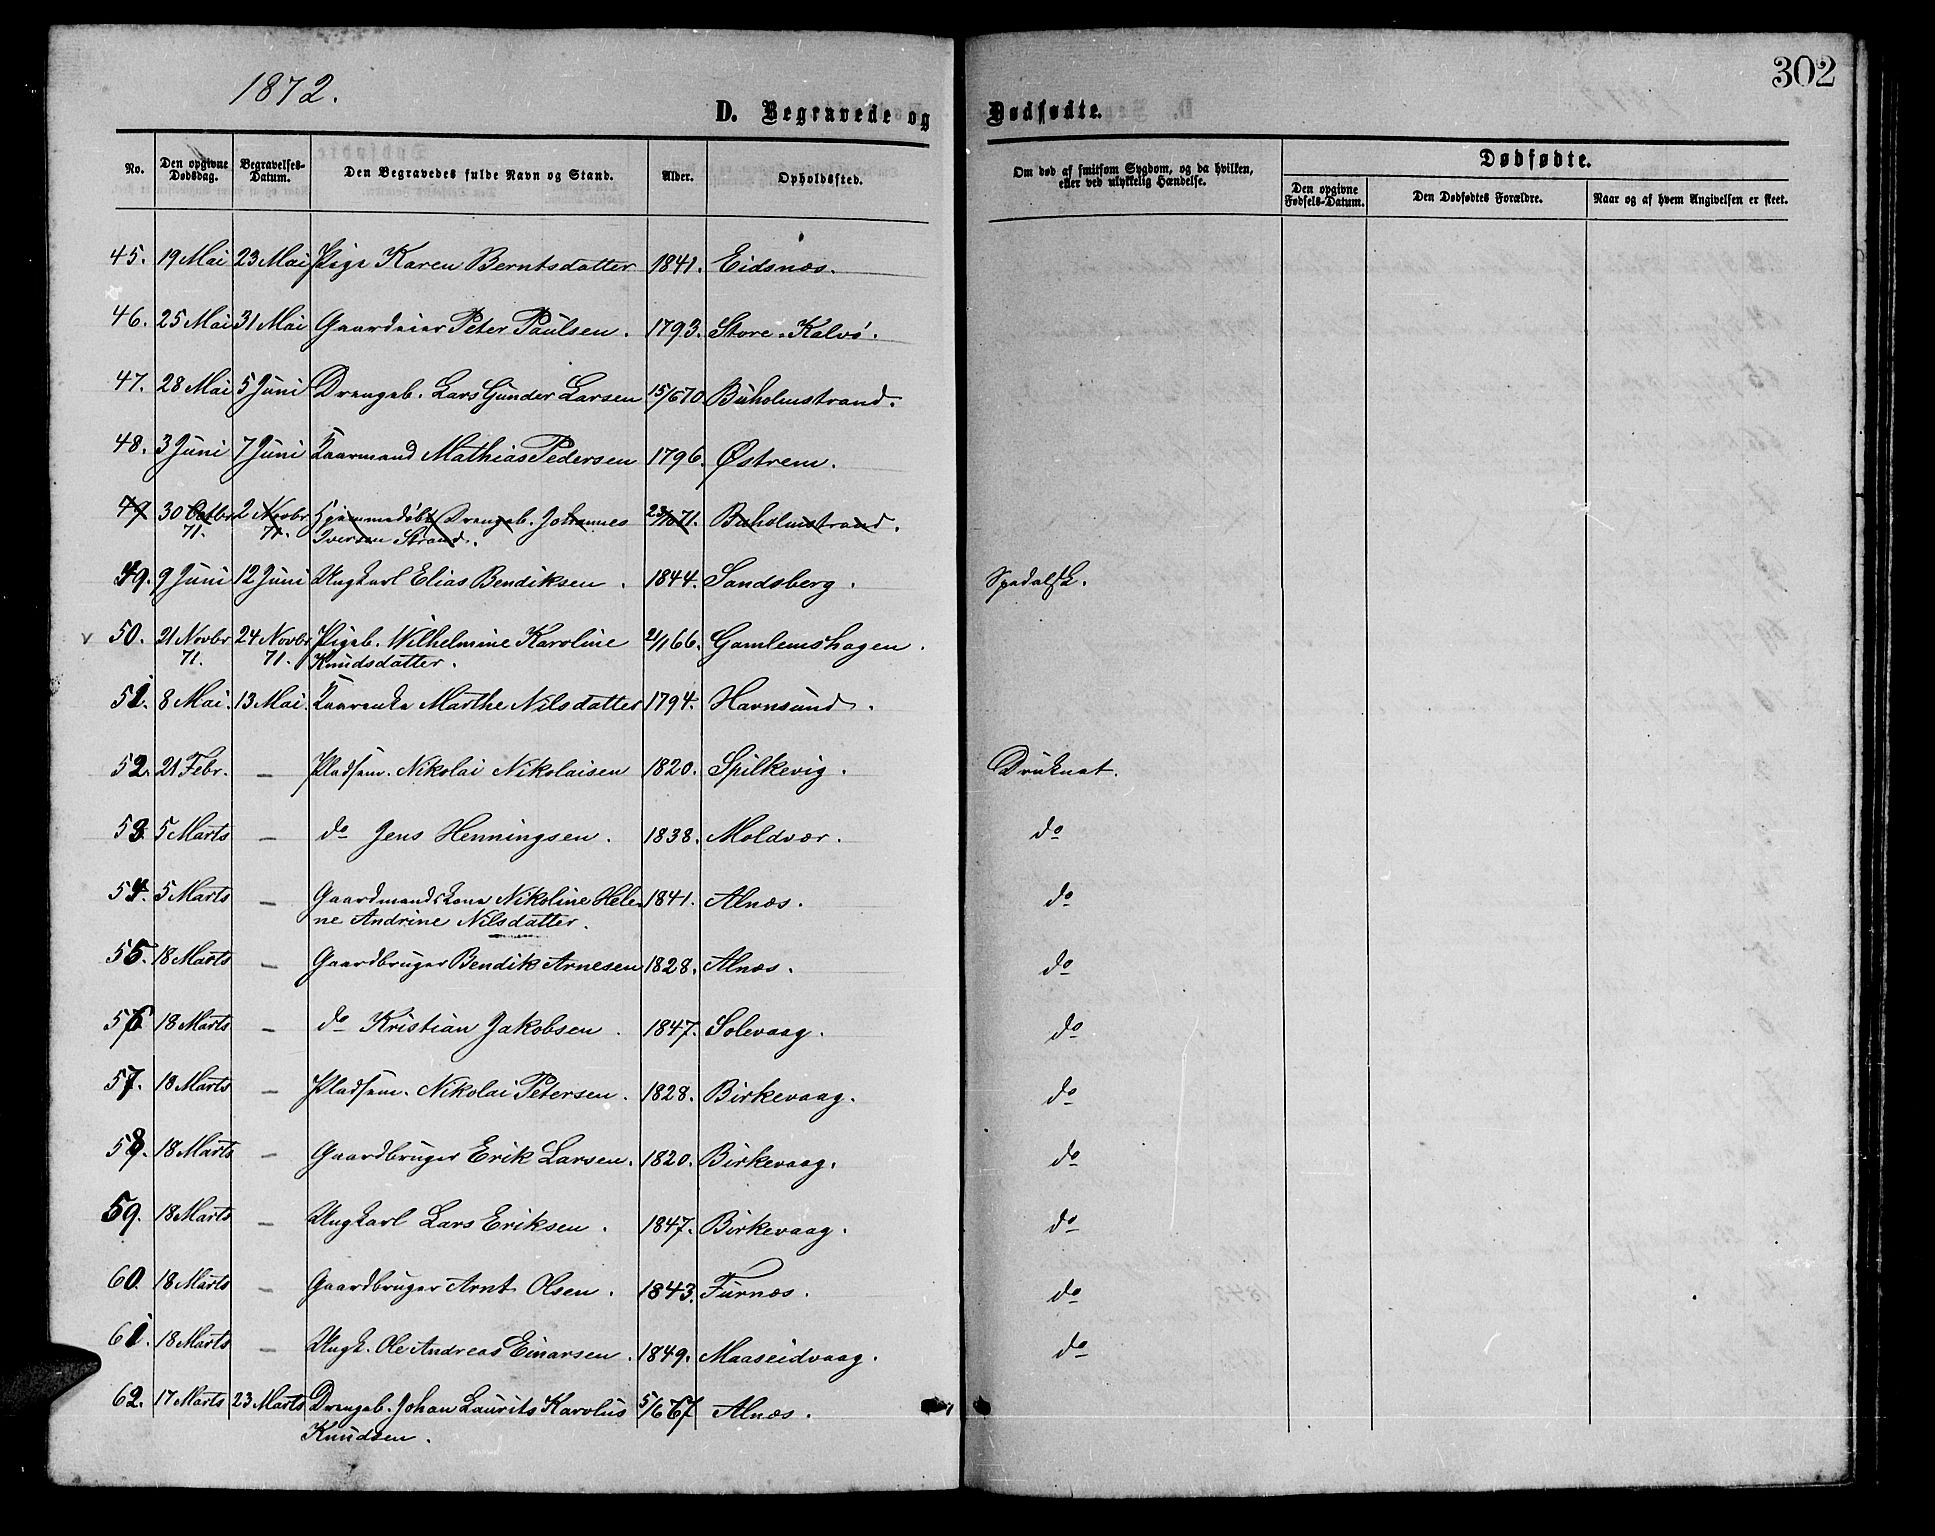 302
1872.
D. Begravede og Dødfødte.
No.
Den opgivne Dødsdag.
Begravelses-Datum.
Den Begravedes fulde Navn og Stand.
Alder.
Opholdssted.
Om død af smitsom Sygdom, og da hvilken, eller ved ulykkelig Hændelse.
Dødfødte.
Den opgivne Fødsels-Datum.
Den Dødfødtes Forældre.
Naar og af hvem Angivelsen er skeet.
45. 19 Mai 23 Mai Pige Karen Berntsdatter 1841. Eidsnæs.
46. 25 Mai 31 Mai Gaardeier Peter Paulsen. 1793. Store-Kalvö.
47. 28 Mai 5 Juni Drengeb. Lars Gunder Larsen 15/6 70. Buholmstrand.
48. 3 Juni 7 Juni Kaarmand Mathias Pedersen 1796. Østrem.
49 30 Octbr 2 Novbr Hjemmedøbt Drengeb. Johannes 23/10 71. Buholmstrand.
71. 71. Iversen Strand.
49. 9 Juni 12 Juni Ungkarl Elias Bendiksen. 1844. Sandsberg. Spedalsk.
v 50. 21 Novbr 24 Novbr Pigeb. Wilhelmine Karoline 21/1 66. Gamlemshagen.
71. 71. Knudsdatter.
51. 8 Mai. 13 Mai. Kaarenke Marthe Nilsdatter 1794. Havnsund.
52. 21 Febr. — Pladsem. Nikolai Nikolaisen 1820. Spilkevig. Druknet.
53. 5 Marts — do Jens Henningsen. 1838. Moldvær. do
54. 5 Marts — Gaardmandskone Nikoline Hele- 1841. Alnæs. do
ne Andrine Nilsdatter.
55. 18 Marts — Gaardbruger Bendik Arnesen 1828. Alnæs. do
56 18 Marts — do Kristian Jakobsen. 1847. Solevaag. do
57. 18 Marts — Pladsem. Nikolai Petersen. 1828. Birkevaag. do
58. 18 Marts — Gaardbruger Erik Larsen. 1820. Birkevaag. do
59. 18 Marts — Ungkarl Lars Eriksen. 1847. Birkevaag. do
60. 18 Marts — Gaardbruger Arnt Olsen. 1843. Furnæs. do
61. 18 Marts — Ungk. Ole Andreas Einarsen. 1849. Maaseidvaag. do
62. 17 Marts 23 Marts Drengeb. Johan Laurits Karolus 5/6 67 Alnæs.
Knudsen.